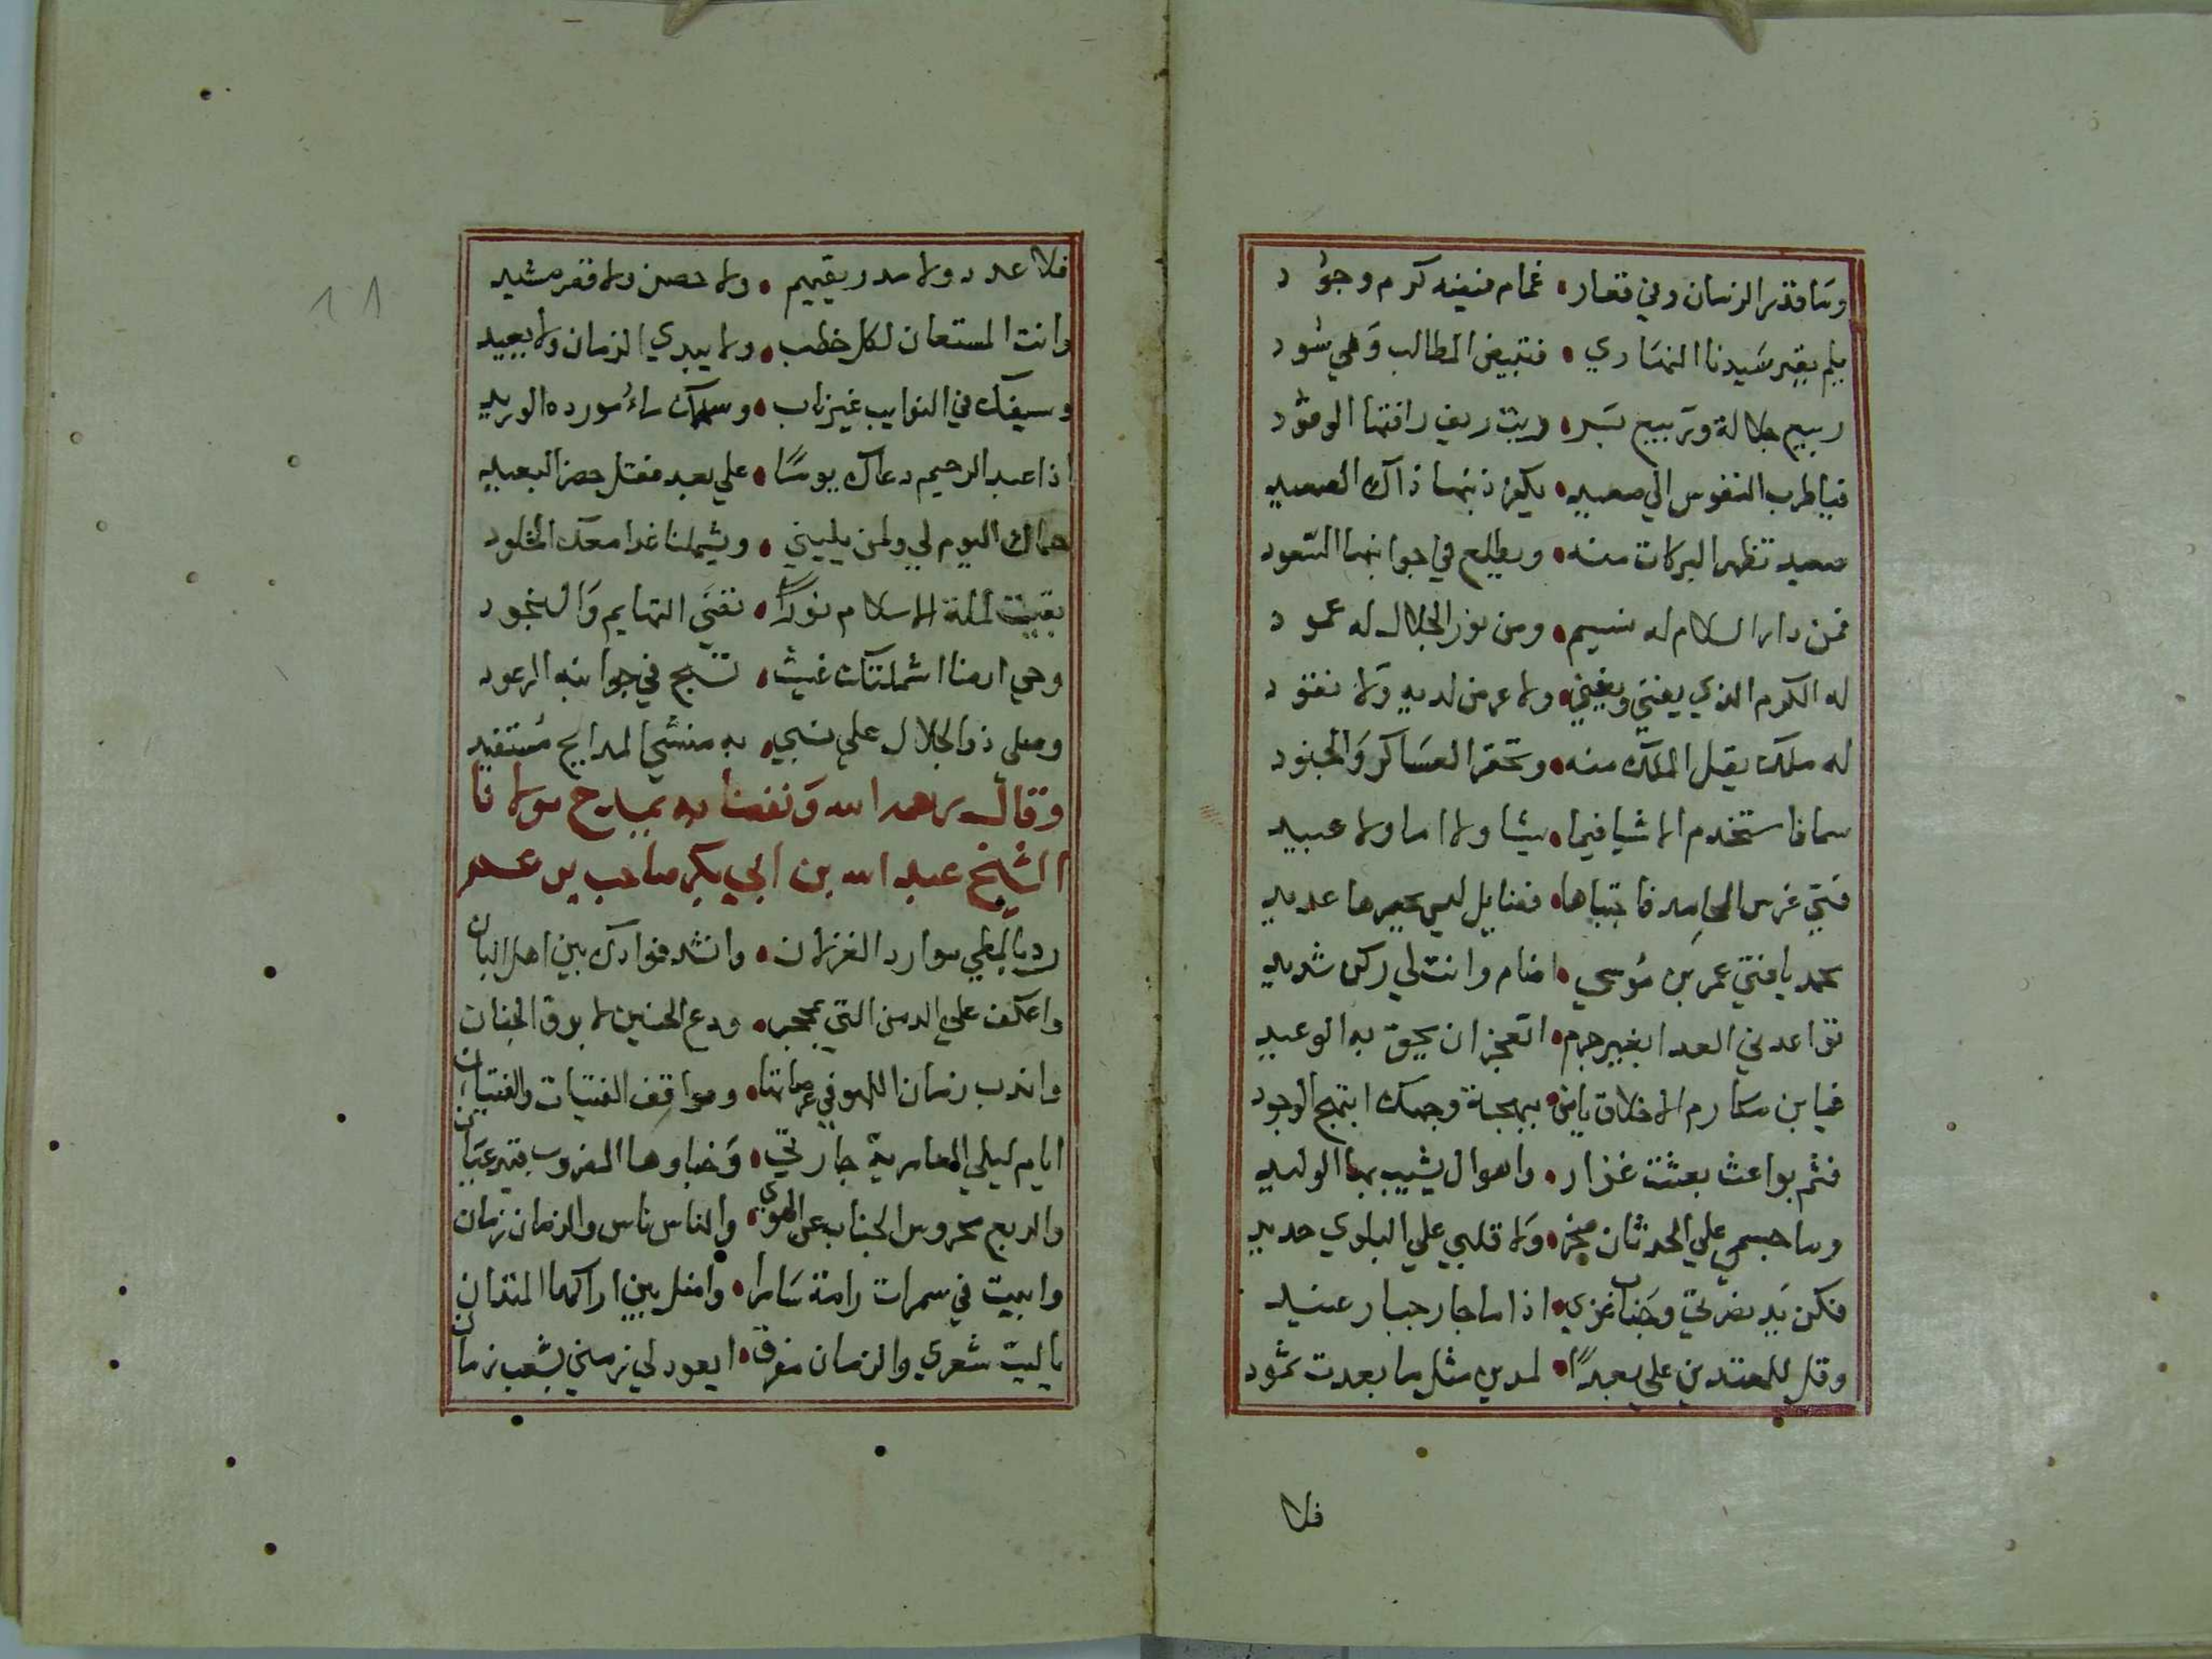 وما قدر الزمان وفي قعار • غمام فيضه كرم وجود
يلم بقبر سيدنا النهاري • فتبيض المطالب وهي سود
ربيع جلالة وربيع بر • وريث ريف رافتها الوفود
فياطرب النفوس الي صعيد • يكفر ذنبها ذاك الصعيد
صعيد تظهر البركات منه • ويطلع في جوانبها السعود
فمن دار السلام له نسيم • ومن نور الجلال له عمود
له الكرم الذي يفني ويغني • ولا عرض لديه ولا نقود
له ملك يقل الملك منه • وتحقر العساكر والجنود
سما فاستخدم الاشيا فيما • يشا ولا اما ولا عبيد
فتي غرس المحامد فاجتباها • فضايل ليس يحصرها عديد
محمد يا فتي عمر بن موسي • اضام وانت لي ركن شديد
تواعدني العدا بغير جرم • اتعجز ان يحيق به الوعيد
فيابن مكارم الاخلاق يامن • ببهجة وجهك ابتهج الوجود
فثم بواعث بعثت غزار • واهوال يشيب بها الوليد
وما جسمي علي الحدثان صخر • ولا قلبي علي البلوي حديد
فكن يد نصرتي وجناب عزي • اذا ما جار جبار عنيد
وقل للمعتدين علي بعدا • لمدين مثل ما بعدت ثمود
فلا
فلا عدد ولا مدد يقيهم • ولا حصن ولا قصر مشيد
وانت المستعان لكل خطب • ولا يبدي الزمان ولا يعيد
وسيفك في النوايب غير ناب • وسهمك راء مورده الوريد
اذا عبد الرحيم دعاك يوما • علي بعد فقل حضر البعيد
حماك اليوم لي ولمن يليني • ويشملنا غدا معك الخلود
بقيت لملة الاسلام نورا • تضي التهايم والنجود
وحي ارضا اشملتك غيث • تسبح في جوانبه الرعود
وصلي ذو الجلال علي نبي • به منشي المدايح مستفيد
وقال رحمه الله ونفعنا به يمدح مولانا
الشيخ عبد الله بن ابي بكر صاحب يرعـ
رد بالمطي موارد الغزلان • وانشد فوادك بين اهل البان
واعكف علي الدمن التي بمحجر • ودع الحنين لابرق الحنان
واندب زمان اللهو في عرصاتها • ومواقف الفتيات والفتيان
ايام ليلي العامرية جارتي • وخباوها المضروب غير عيان
والربع محروس الجناب عن الهوي • والناس ناس والزمان زمان
وابيت في سمرات رامة سامرا • واضل بين اراكها المتدان
يا ليت شعري والزمان مفرق • ايعود لي زمني بشعب زمان